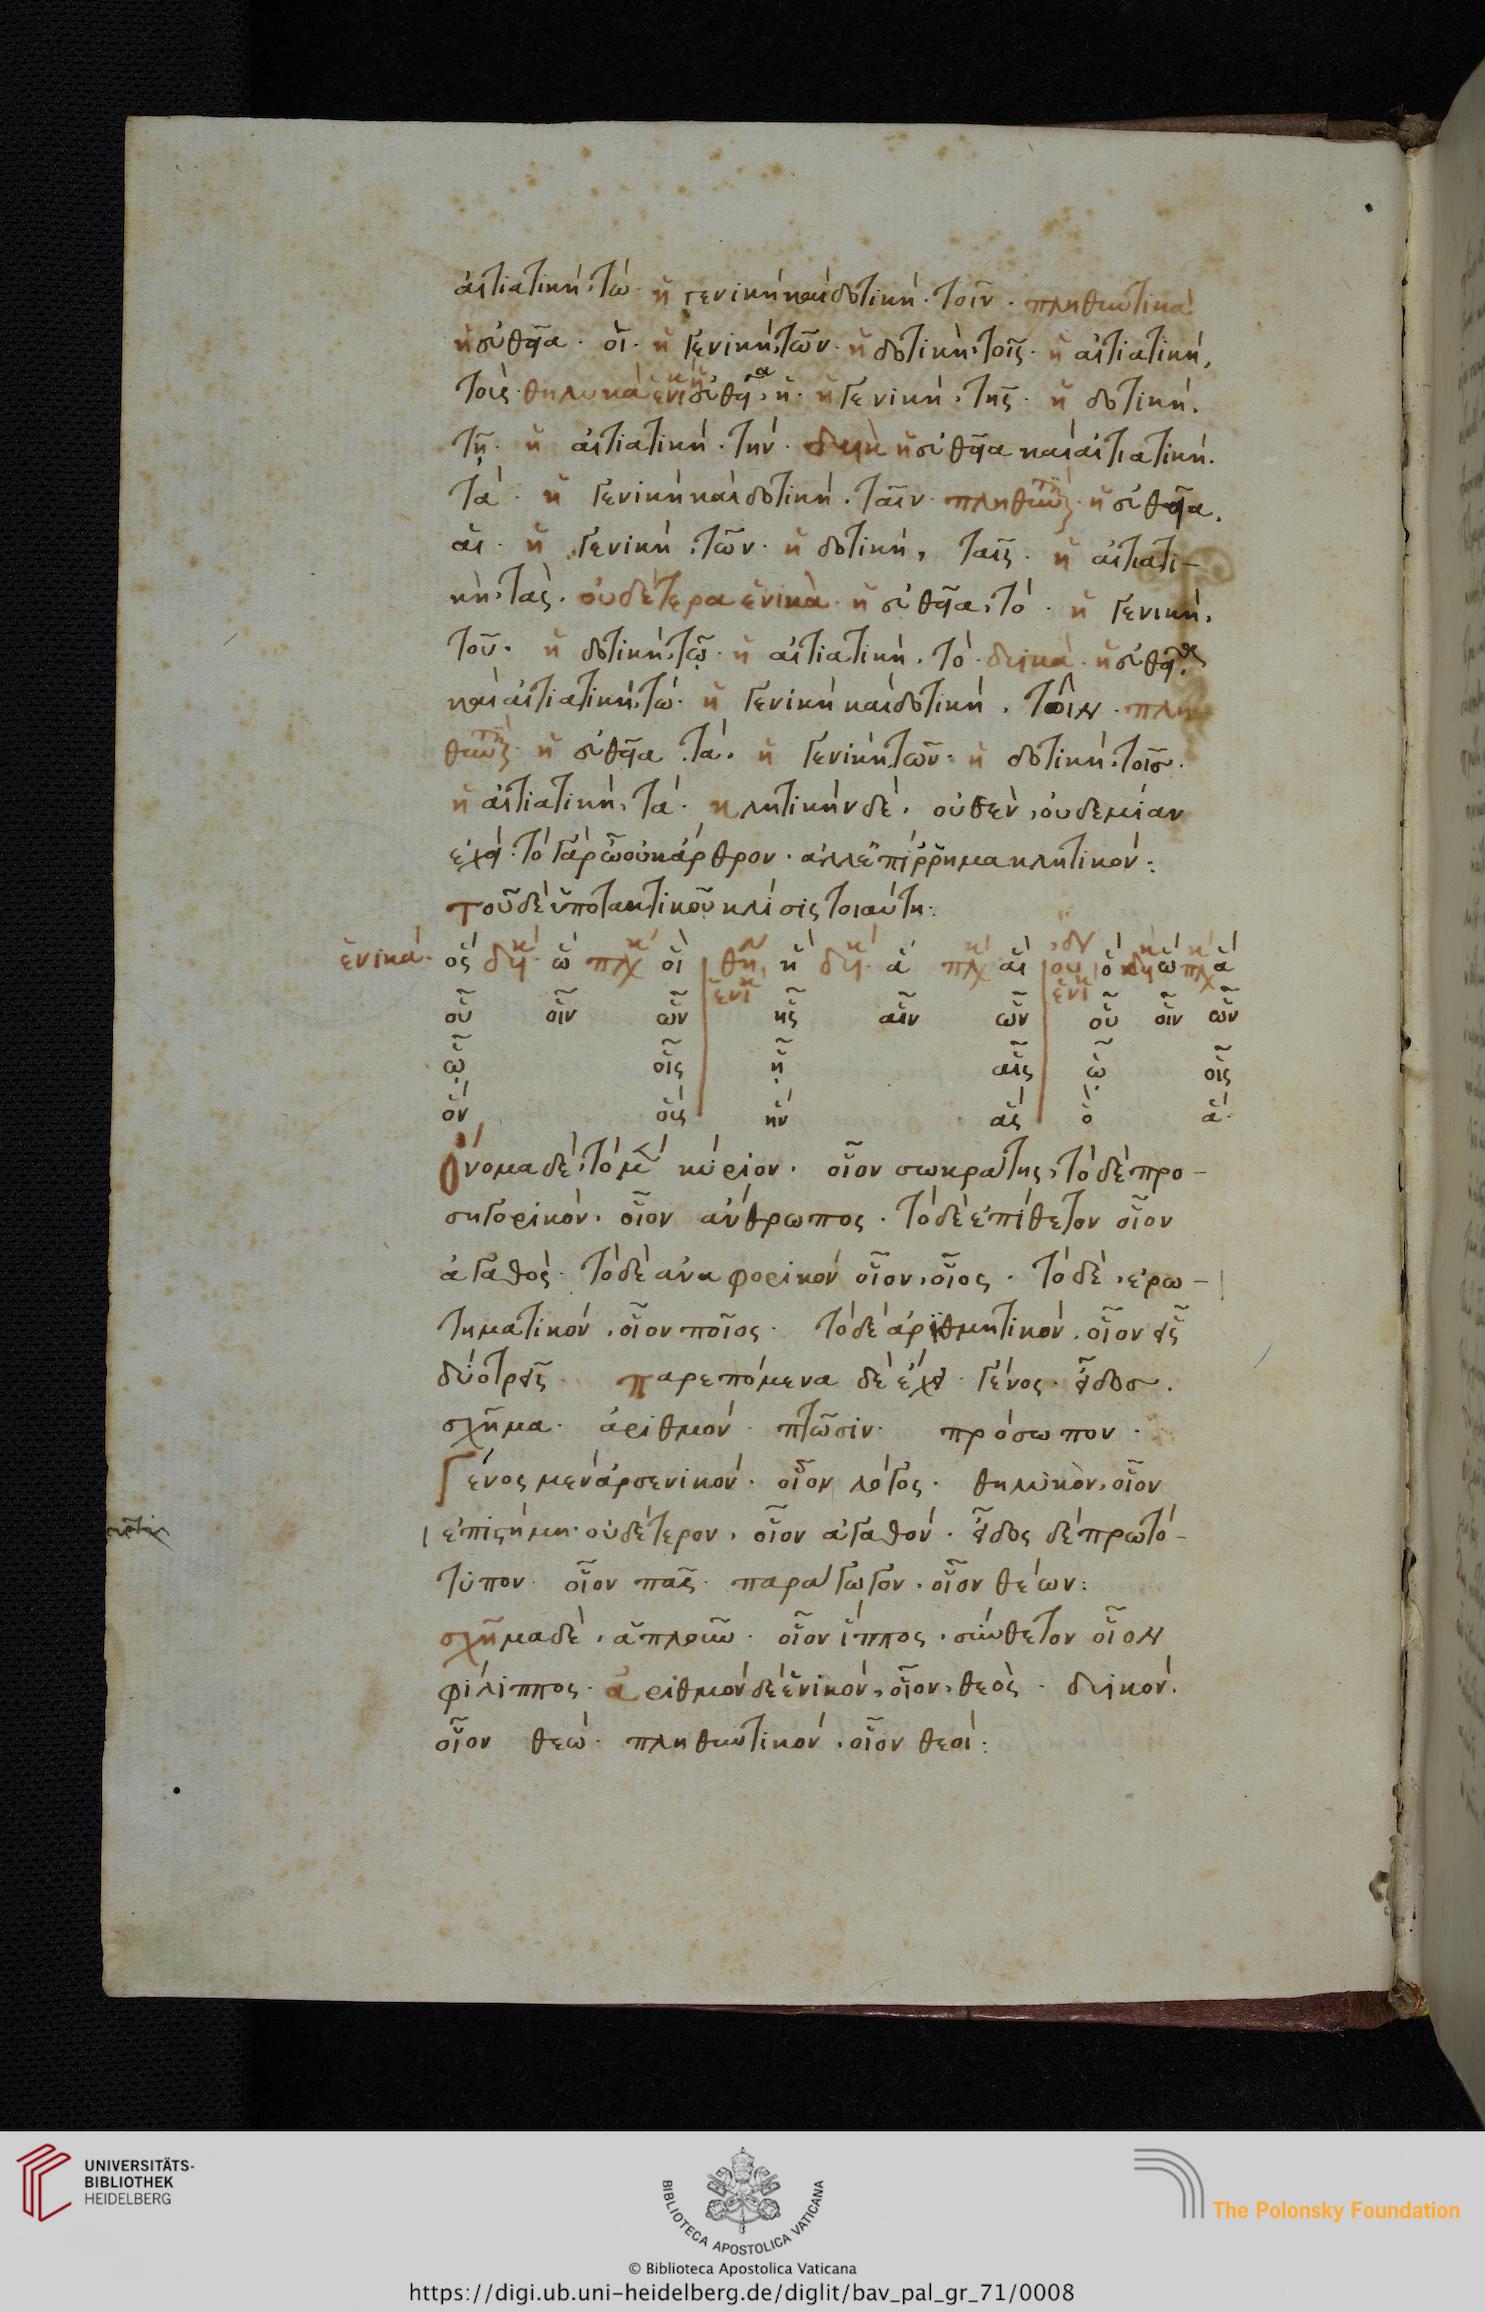 αἰτιατικὴ, τώ· ἡ γενικὴ καὶ δοτικὴ· τοῖν· πληθυντικά
ἡ εὐθεῖα· οἱ· ἡ γενικὴ, τῶν· ἡ δοτικὴ, τοῖς· ἡ αἰτιατικὴ,
τοὺς· θηλυκὰ ἑνικὰ ἡ εὐθεῖα, ἡ· ἡ γενικὴ, τῆς· ἡ δοτικὴ.
τῇ· ἡ αἰτιατικὴ· τήν· δυϊκὰ ἡ εὐθεῖα καὶ αἰτιατικὴ.
τά· ἡ γενικὴ καὶ δοτικὴ. ταῖν· ἡ εὐθεῖα,
αἱ· ἡ γενικὴ, τῶν· ἡ δοτικὴ, ταῖς· ἡ αἰτιατι-
κὴ, τὰς. οὐδέτερα ἑνικὰ· ἡ εὐθεῖα, τὸ· ἡ γενικὴ,
τοῦ· ἡ δοτικὴ, τῷ· ἡ αἰτιατικὴ. τὸ· δυϊκὰ· ἡ εὐθεῖα
καὶ αἰτιατικὴ, τώ· ἡ γενικὴ καὶ δοτικὴ. τοῖν· πλη-
ἡ εὐθεῖα τά· ἡ γενικὴ, τῶν· ἡ δοτικὴ, τοῖσ.
ἡ αἰτιατικὴ, τά· κλητικὴν δὲ. οὐθὲν, οὐδεμίαν
ἔχει· τὸ γὰρ ὦ οὐκ ἄρθρον· ἀλλ' ἐπίρρημα κλητικόν:
τοῦ δὲ ὑποτακτικοῦ κλίσις τοιαύτη:
ἑνικά· ὅς δυικ ὥ πλ οἵ θη ἥ δυικ ἅ πλ αἵ ουδ ὅ δυικ ὥ πλ ἅ
οὗ οἷν ὧν ἑνικ ἧς αἷν ὧν ἑνικ οὗ οἷν ὧν
ᾧ οἷς ᾗ αἷς ᾧ οἷς
ὅν οὕς ἥν ἅς ὅ ἅ·
Ὄνομα δὲ, τὸ μὲν κύριον· οἷον σωκράτης, τὸ δὲ προ-
σηγορικόν, οἷον ἄνθρωπος· τὸ δὲ ἐπίθετον οἷον
ἀγαθός· τὸ δὲ ἀναφορικὸν οἷον, οἷος· τὸ δὲ, ἐρω-
τηματικόν, οἷον ποῖος· τὸ δὲ ἀριθμητικόν. οἷον εἷς
δύο τρεῖς· παρεπόμενα δὲ ἔχει· γένος· εἶδοσ.
σχῆμα· ἀριθμόν· πτῶσιν· πρόσωπον·
Γένος μὲν ἀρσενικόν· οἷον λόγος· θηλυκὸν, οἷον
ἐπιστήμη· οὐδέτερον, οἷον ἀγαθόν· εἶδος δὲ πρωτό-
τυπον· οἷον πᾶς· παράγωγον, οἷον θέων:
σχῆμα δὲ, ἁπλοῦν· οἷον ἵππος, σύνθετον οἷον
φίλιππος· ἀριθμὸν δὲ ἑνικὸν, οἷον, θεὸς· δυϊκόν.
οἷον θεώ· πληθυντικόν, οἷον θεοί:
UNIVERSITÄTS-
BIBLIOTHEK
HEIDELBERG
BIBLIOTECA APOSTOLICA VATICANA
The Polonsky Foundation
© Biblioteca Apostolica Vaticana
https://digi.ub.uni-heidelberg.de/diglit/bav_pal_gr_71/0008